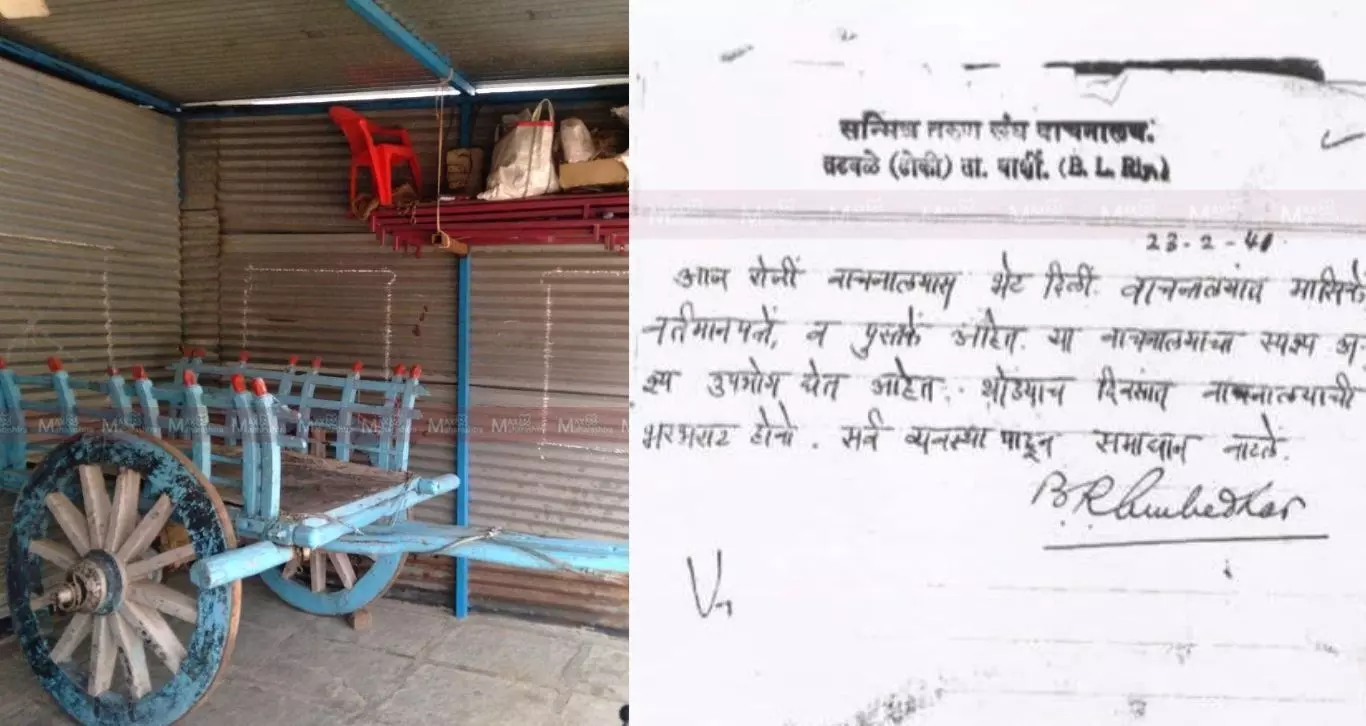 सन्मित्र तरुण संघ वाचनालय.
वडवळे (ढोकी) ता. पार्शी. (B. L. Rly.)
23-2-41
आज रोजीं वाचनालयास भेट दिली. वाचनालयांत मासिकें
वर्तमानपत्रें, व पुस्तकें आहेत. या वाचनालयाचा स्पृश्य अ-
श्य उपभोग घेत आहेत. थोड्याच दिवसांत वाचनालयाची
भरभराट होवो. सर्व व्यवस्था पाहून समाधान वाटले.
B. R. Ambedkar